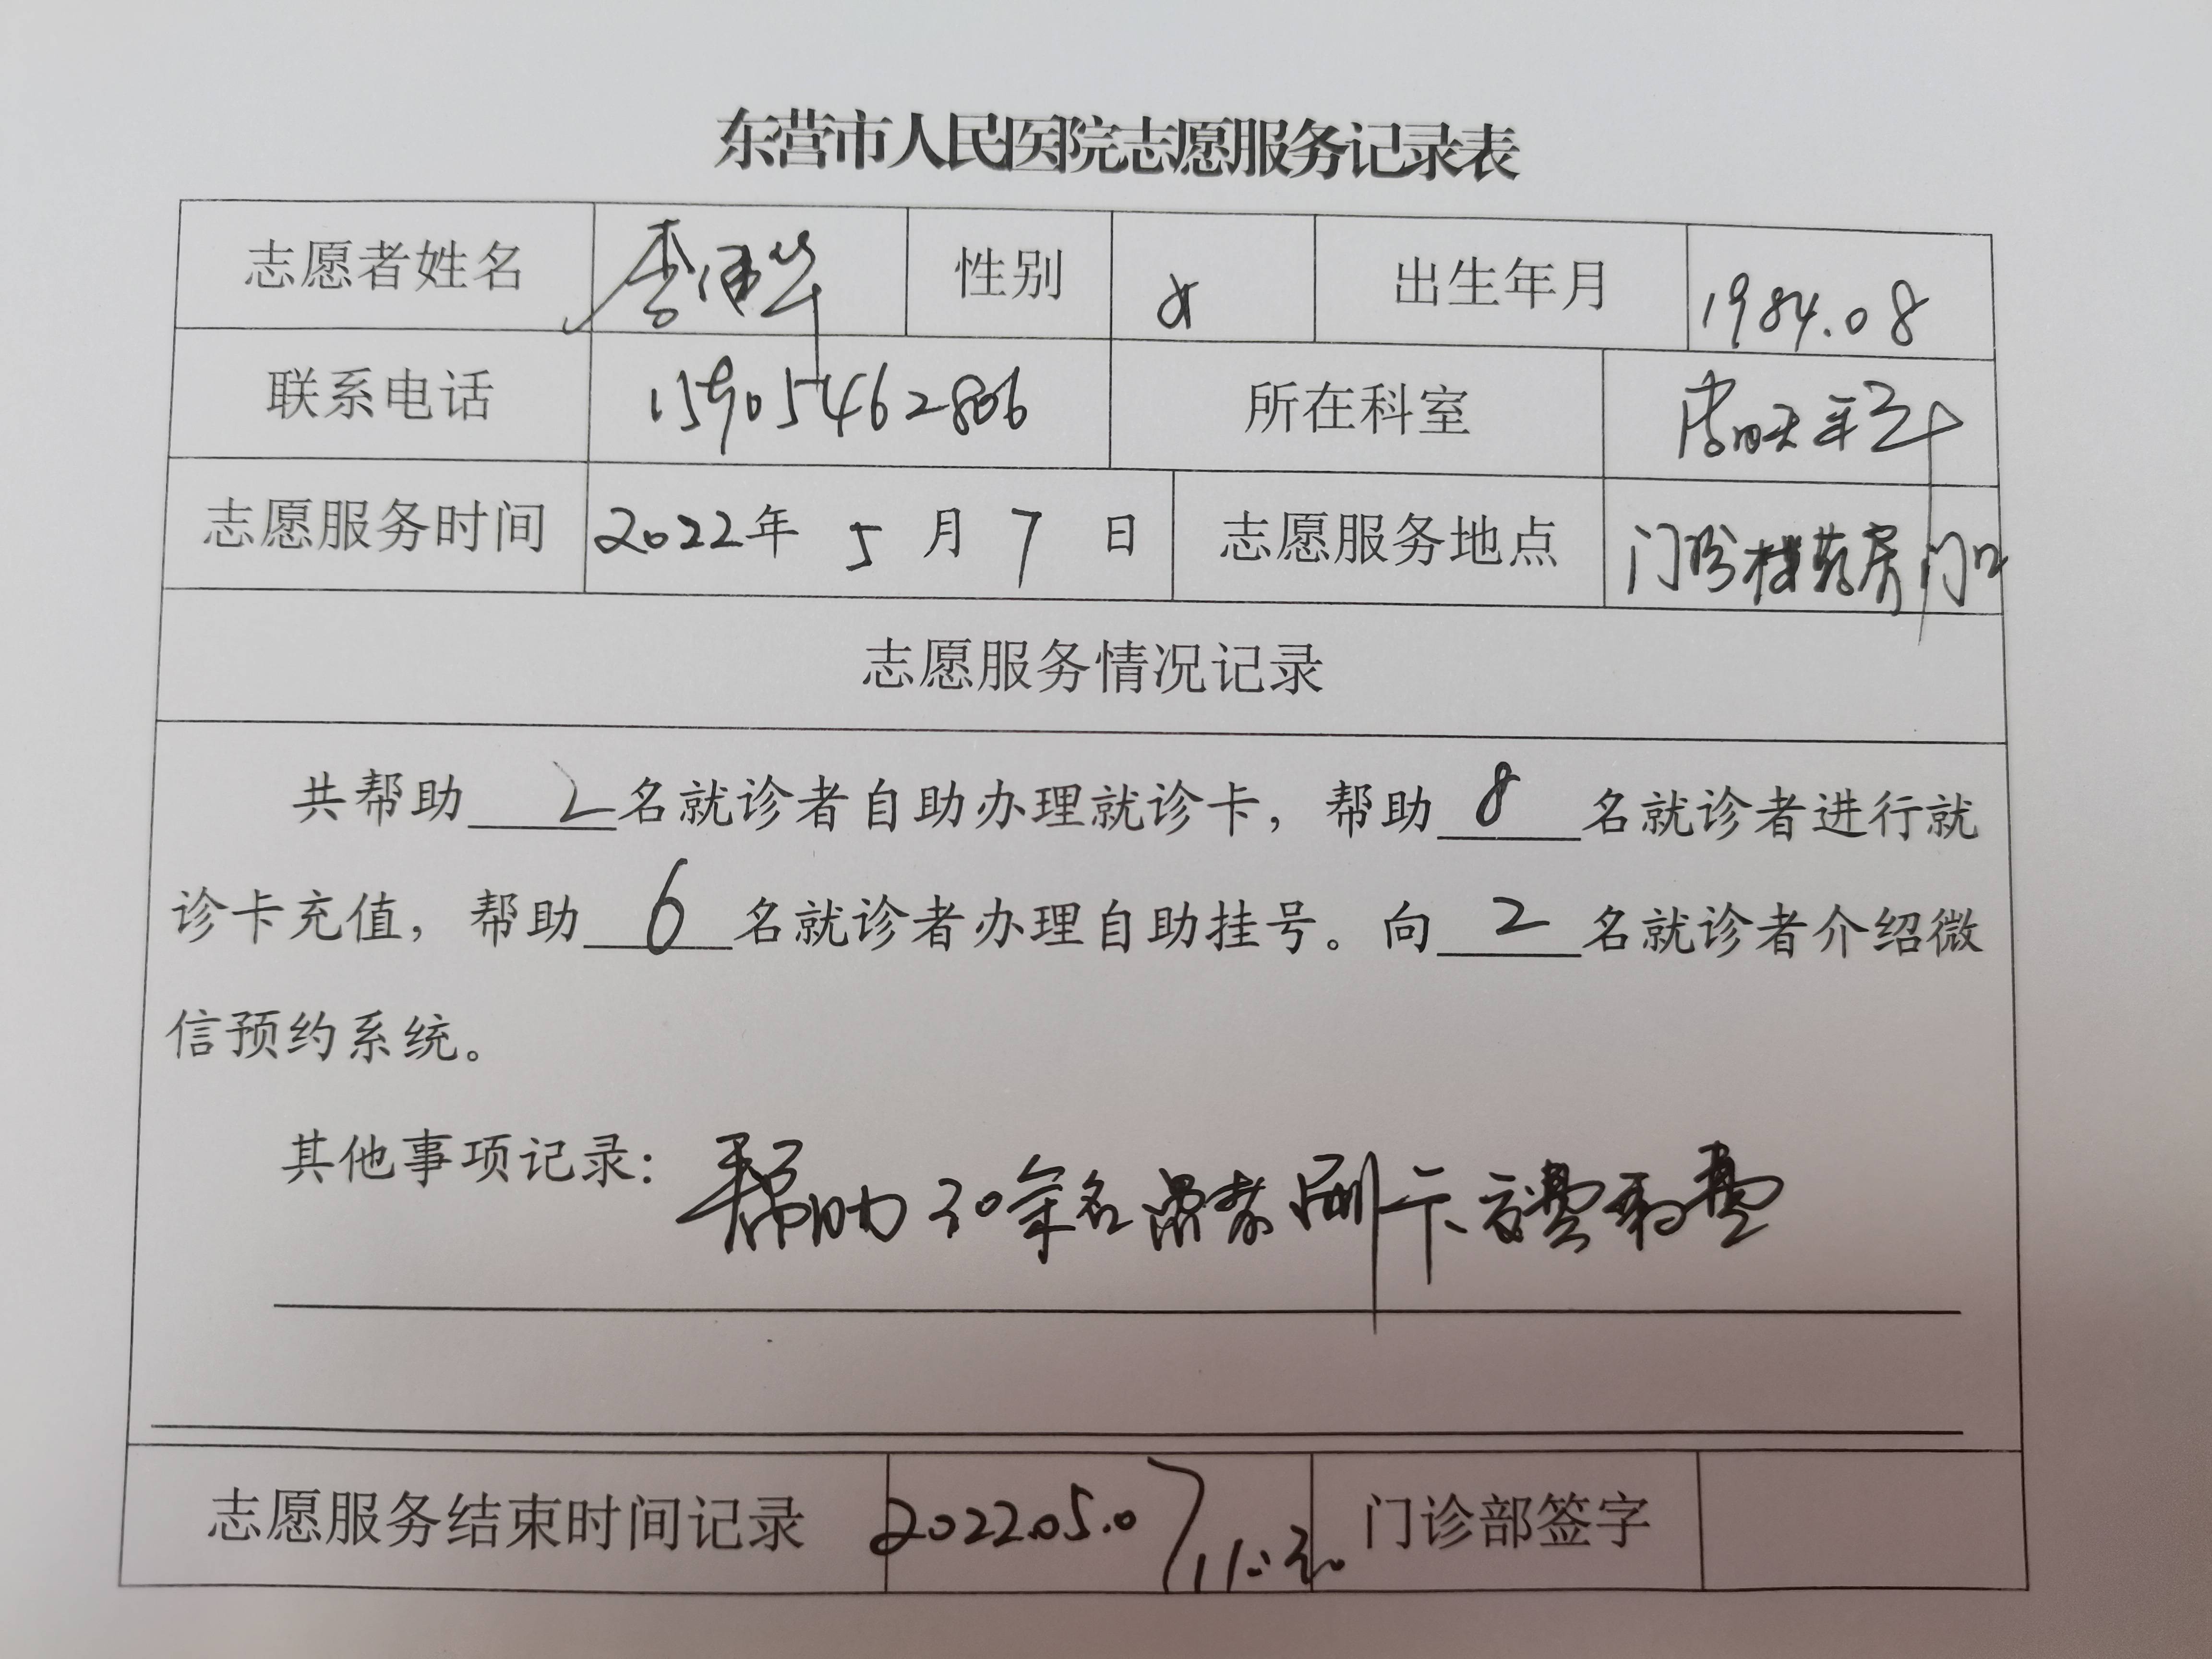 东营市人民医院志愿服务记录表
志愿者姓名 李 性别 女 出生年月 1984.08
联系电话 15905462806 所在科室
志愿服务时间 2022年 5 月 7 日 志愿服务地点 门诊楼药房门口
志愿服务情况记录
共帮助 2 名就诊者自助办理就诊卡，帮助 8 名就诊者进行就
诊卡充值，帮助 6 名就诊者办理自助挂号。向 2 名就诊者介绍微
信预约系统。
其他事项记录： 帮助30余名患者刷卡
志愿服务结束时间记录 2022.05.07 11:30 门诊部签字